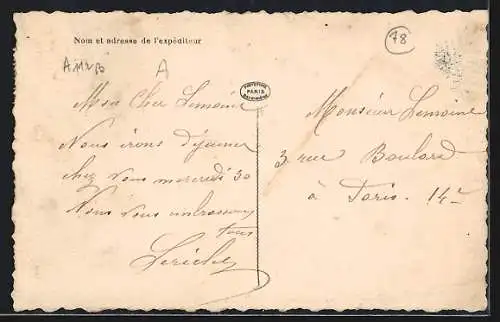 Nom et adresse de l'expéditeur
78
A
PARIS
Mon Cher Lemoine
Nous irons déjeuner
chez vous mercredi 30
Nous vous embrassons
tous
Leriche
Monsieur Lemoine
3 rue Boulard
à Paris. 14e